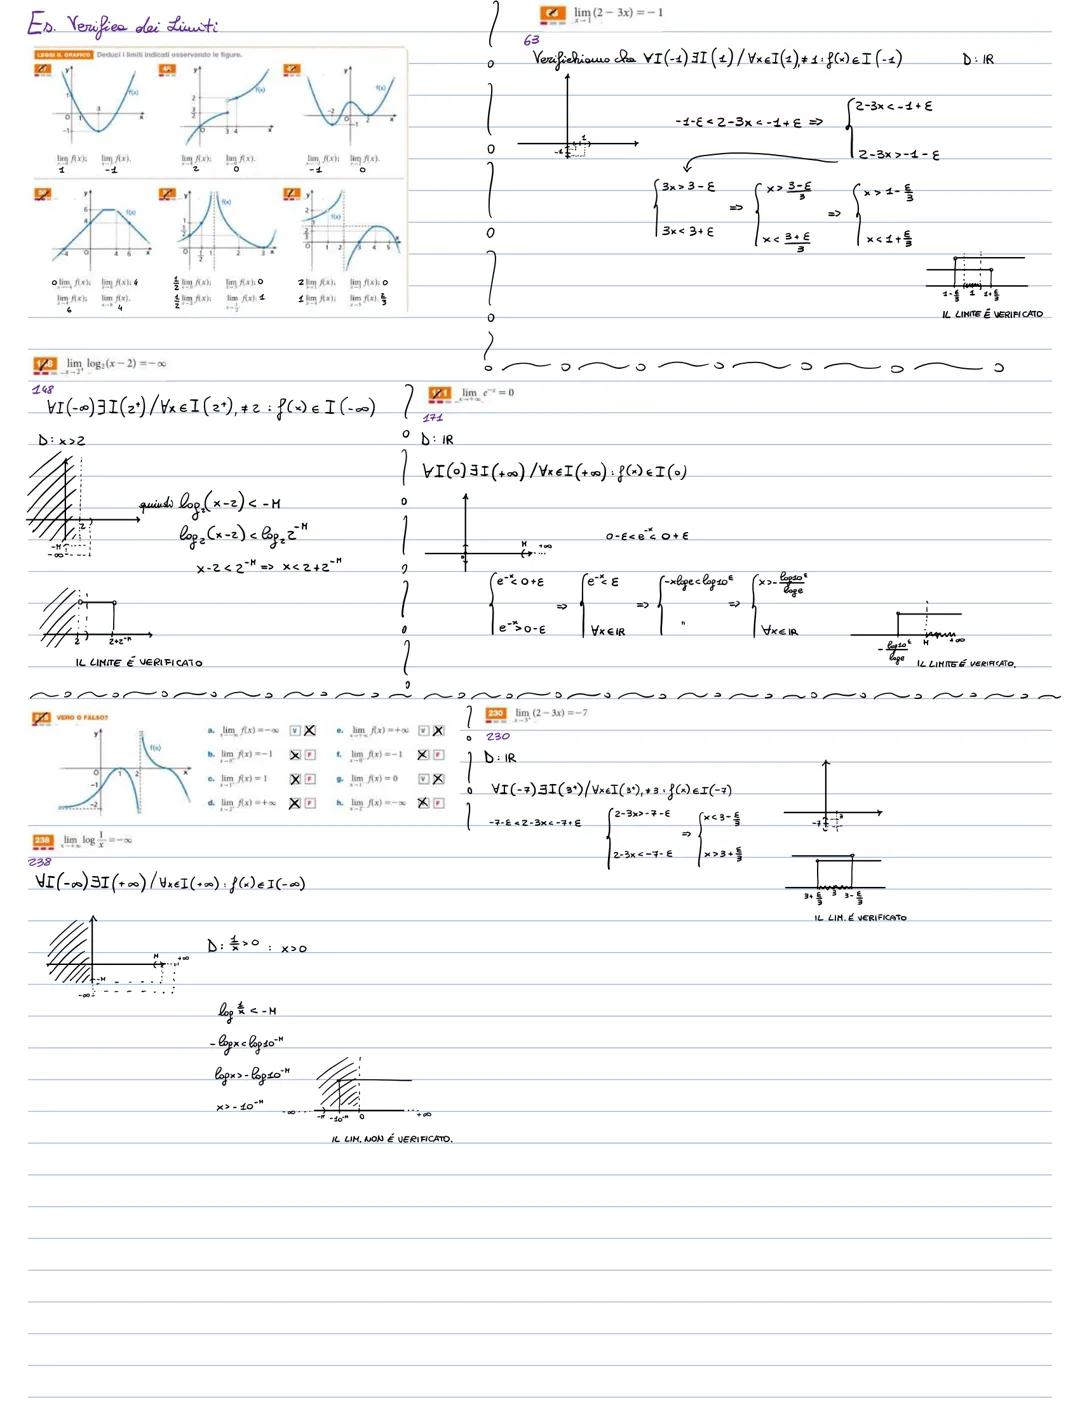 Es. Verifica dei Limiti
LEGGI IL GRAFICO Deduci i limiti indicati osservando le figure.
lim f(x); lim f(x).
1 -1
lim f(x); lim f(x).
2 0
lim f(x); lim f(x).
-1 0
0 lim f(x); lim f(x); 4
lim f(x); lim f(x).
6 4
1/2 lim f(x); lim f(x); 0
1/2 lim f(x); lim f(x). 1
2 lim f(x); lim f(x); 0
1 lim f(x); lim f(x). 2/3
lim x→1 (2 − 3x) = −1
63
Verifichiamo che ∀I(-1) ∃I(1) / ∀x∈I(1), ≠1 : f(x)∈I(-1) D: IR
-1-ε < 2-3x < -1+ε => { 2-3x < -1+ε
2-3x > -1-ε
{ 3x > 3-ε => { x > 3-ε/3 => { x > 1-ε/3
3x < 3+ε x < 3+ε/3 x < 1+ε/3
1-ε/3 1 1+ε/3
IL LIMITE É VERIFICATO
lim x→2⁺ log₂(x − 2) = −∞
148
∀I(-∞) ∃I(2⁺) / ∀x∈I(2⁺), ≠2 : f(x)∈I(-∞)
D: x>2
quindi log₂(x-2) < -M
log₂(x-2) < log₂2^-M
x-2 < 2^-M => x < 2+2^-M
2 2+2^-M
IL LIMITE É VERIFICATO
171 lim x→+∞ e^-x = 0
171
D: IR
∀I(0) ∃I(+∞) / ∀x∈I(+∞) : f(x)∈I(0)
M +∞
0-ε < e^-x < 0+ε
{ e^-x < 0+ε => { e^-x < ε => { -xloge < log10^ε => { x > -log10^ε/loge
e^-x > 0-ε ∀x∈IR " ∀x∈IR
-log10^ε/loge M +∞
IL LIMITE É VERIFICATO.
VERO O FALSO?
a. lim f(x) = −∞ V F
b. lim f(x) = −1 V F
c. lim f(x) = 1 V F
d. lim f(x) = +∞ V F
e. lim f(x) = +∞ V F
f. lim f(x) = −1 V F
g. lim f(x) = 0 V F
h. lim f(x) = −∞ V F
230 lim x→3⁺ (2 − 3x) = −7
230
D: IR
∀I(-7) ∃I(3⁺) / ∀x∈I(3⁺), ≠3 : f(x)∈I(-7)
-7-ε < 2-3x < -7+ε { 2-3x > -7-ε => { x < 3-ε/3
2-3x < -7-ε x > 3+ε/3
3+ε/3 3 3-ε/3
IL LIM. É VERIFICATO
238 lim x→+∞ log 1/x = −∞
238
∀I(-∞) ∃I(+∞) / ∀x∈I(+∞) : f(x)∈I(-∞)
D: 1/x > 0 : x>0
log 1/x < -M
-logx < log10^-M
logx > -log10^-M
x > -10^-M
-∞ -M -10^-M 0 +∞
IL LIM. NON É VERIFICATO.